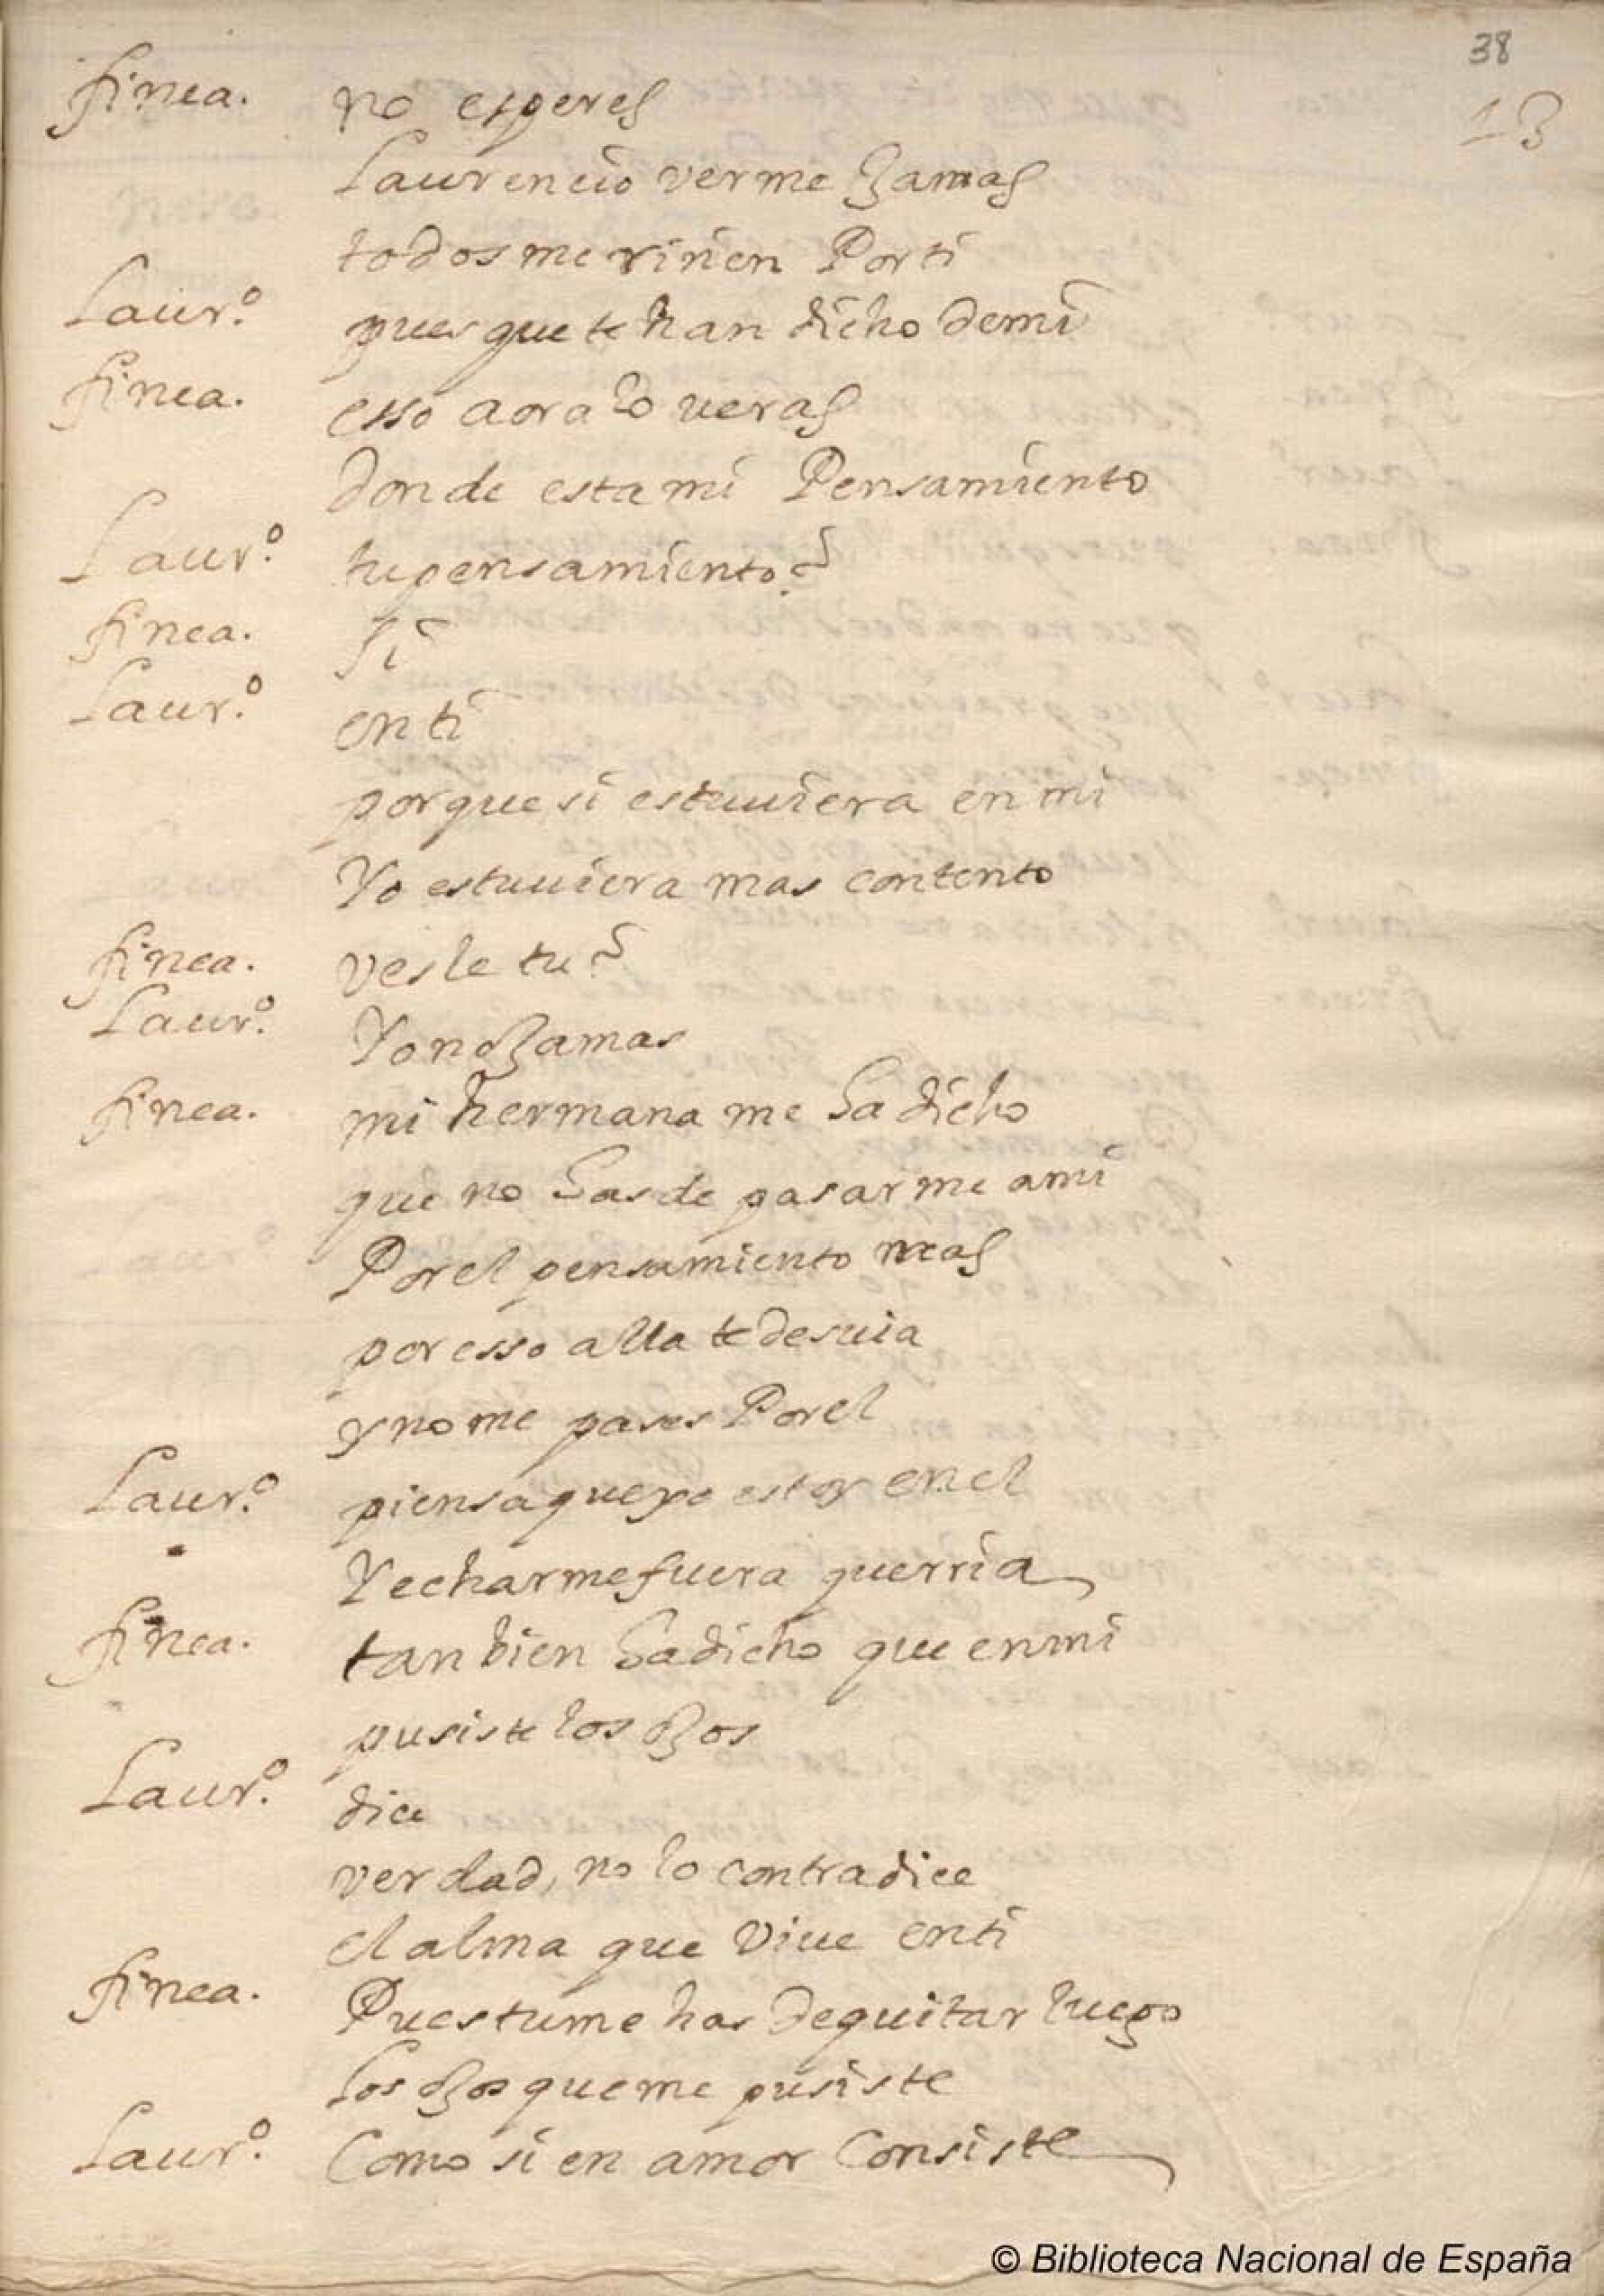 38
13
finea. no esperes
Laurencio verme Jamas
todos me riñen Por ti
Laur.º pues que te han dicho de mi
finea. esso aora lo veras
donde esta mi Pensamiento
Laur.º tu pensamiento?
finea. si
Laur.º en ti
porque si estuuiera en mi
Yo estuuiera mas contento
finea. vesle tu?
Laur.º Yo no Jamas
finea. mi hermana me ha dicho
que no has de pasarme a mi
Por el pensamiento mas
por esso alla te desuia
y no me pases Por el
Laur.º piensa que yo estoy en el
Y echarme fuera querria
finea. tanbien ha dicho que en mi
pusiste los ojos
Laur.º dice
verdad, no lo contradice
el alma que Viue en ti
finea. Pues tu me has de quitar luego
los ojos que me pusiste
Laur.º Como si en amor Consiste
© Biblioteca Nacional de España